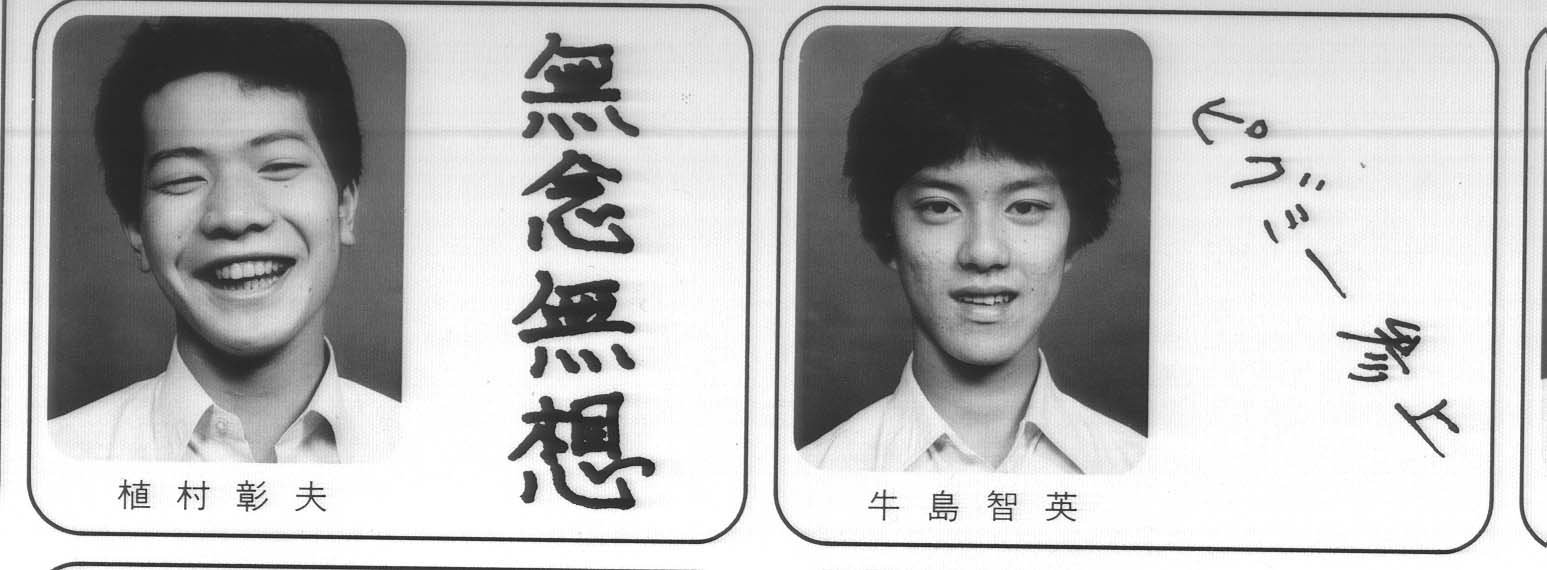 無念無想
植村彰夫
ピグミー参上
牛島智英